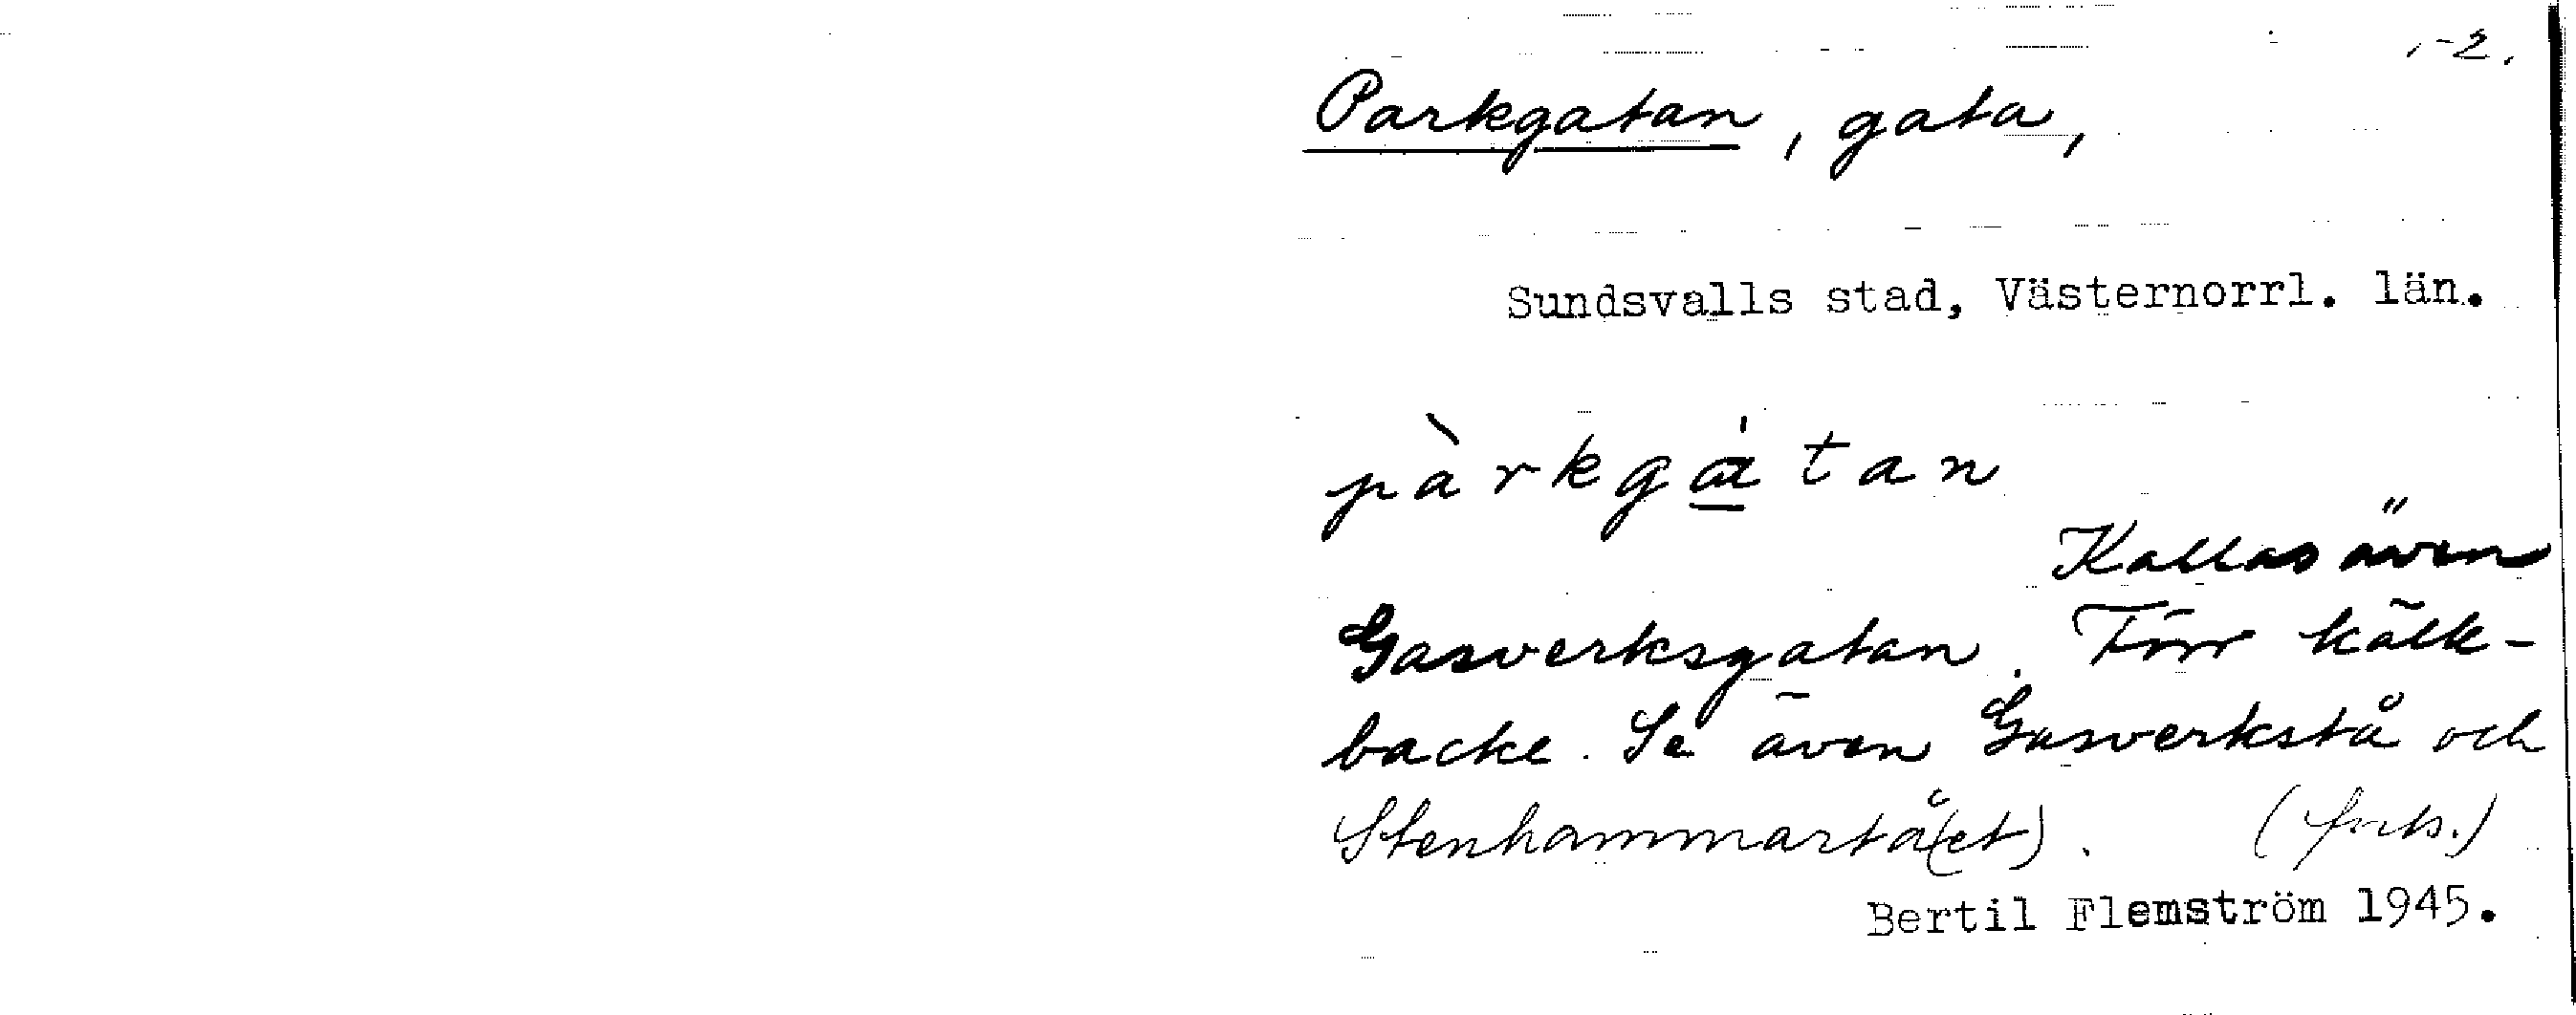 1-2.
Parkgatan, gata,
Sundsvalls stad, Västernorrl. län.
pàrkgátan
Kallas även
Gasverksgatan. Förr kälk-
backe. Se även Gasverkstå och
Stenhammartå(et). (forts.)
Bertil Flemström 1945.